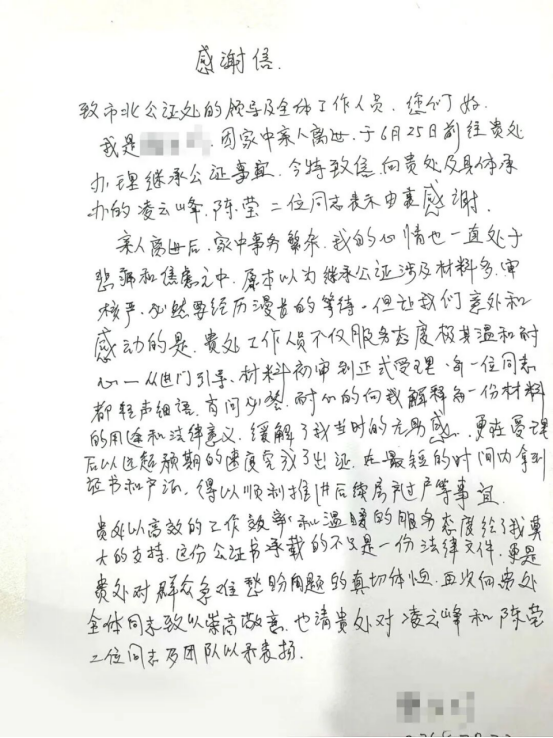 感谢信.
致市北公证处的领导及全体工作人员，您们好.
我是 因家中亲人离世，于6月25日前往贵处
办理继承公证事宜，今特致信，向贵处及具体承
办的凌云峰、陈莹二位同志表示由衷感谢.
亲人离世后，家中事务繁杂，我的心情也一直处于
悲痛和焦虑之中，原本以为继承公证涉及材料多，审
核严，必然要经历漫长的等待，但让我们意外和
感动的是，贵处工作人员不仅服务态度极其温和耐
心——从进门引导、材料初审到正式受理，每一位同志
都轻声细语，有问必答，耐心的向我解释每一份材料
的用途和法律意义，缓解了我当时的无助感，更在受理
后以远超预期的速度完成了出证，在最短的时间内拿到
证书和产证，得以顺利推进后续房产过户等事宜.
贵处以高效的工作效率和温暖的服务态度给了我莫
大的支持，这份公证书承载的不仅是一份法律文件，更是
贵处对群众急难愁盼问题的真切体恤，再次向贵处
全体同志致以崇高敬意，也请贵处对凌云峰和陈莹
二位同志及团队以示表扬.